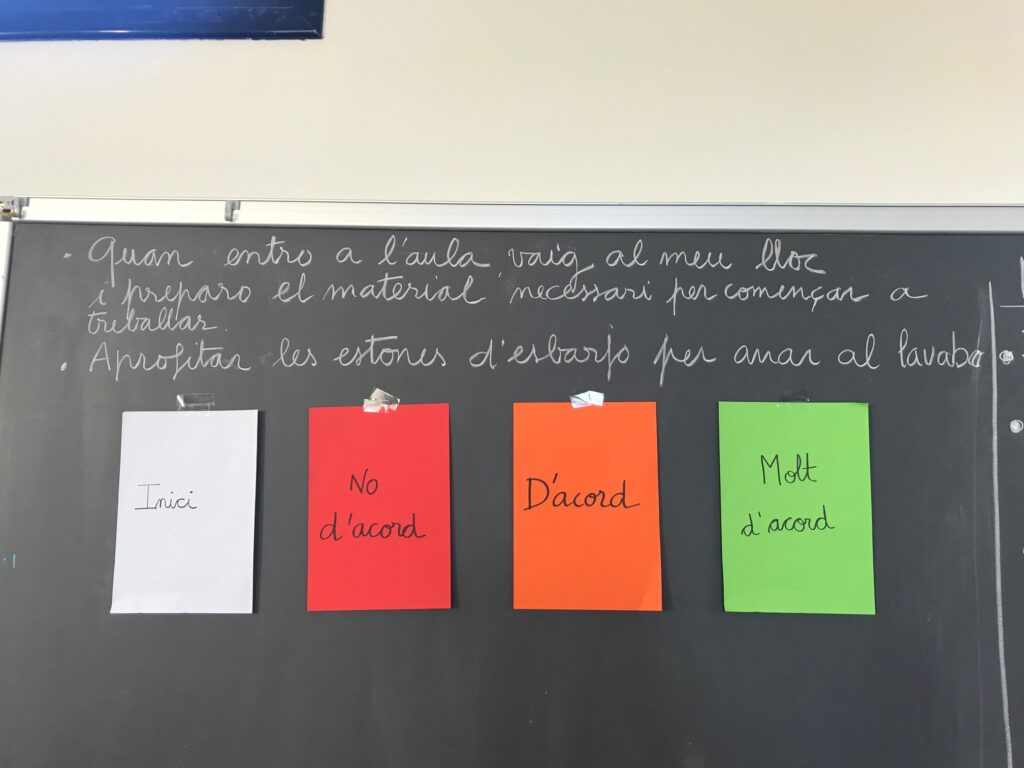 . Quan entro a l'aula vaig al meu lloc
i preparo el material necessari per començar a
treballar.
. Aprofitar les estones d'esbarjo per anar al lavabo
Inici
No
d'acord
D'acord
Molt
d'acord